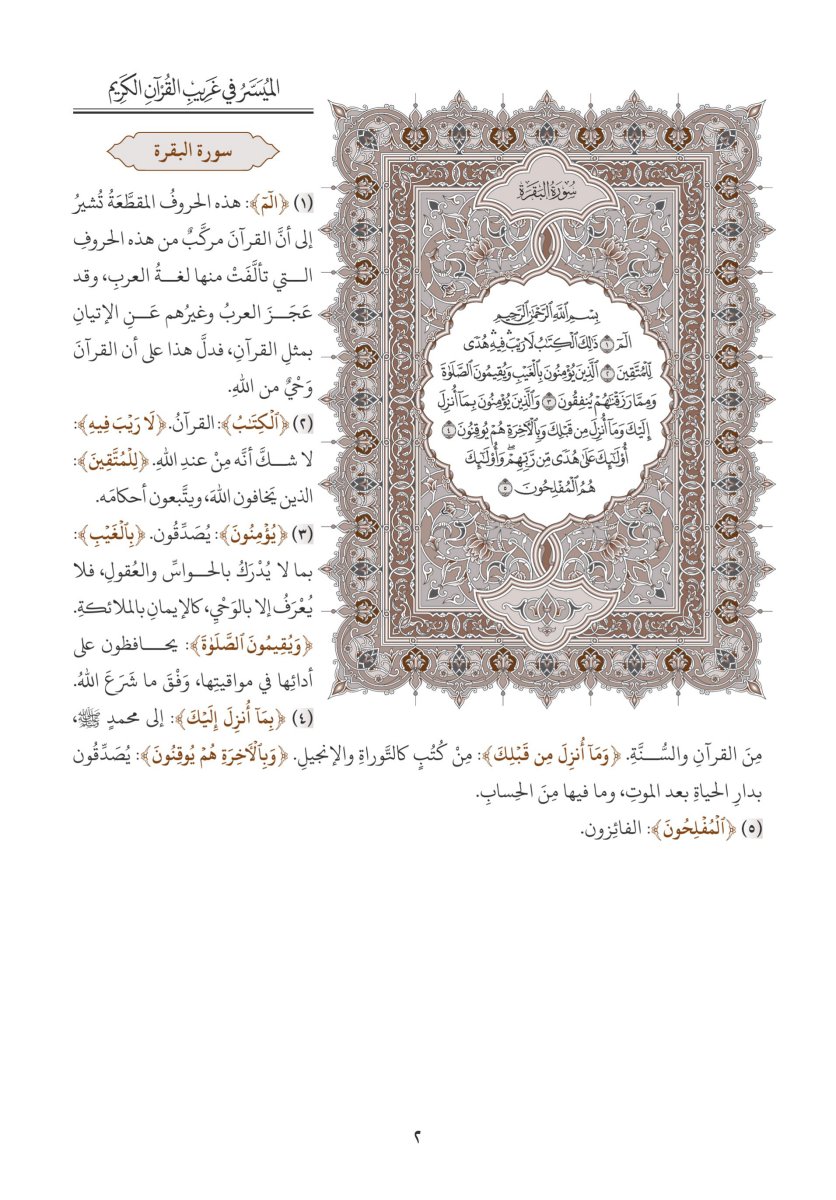 الميُسَّرُ في غَرِيبِ القُرْآنِ الكَرِيمِ
سورة البقرة
(١) ﴿الٓمٓ﴾: هذه الحروفُ المقطَّعَةُ تُشيرُ
إلى أنَّ القرآنَ مركَّبٌ من هذه الحروفِ
التي تألَّفَتْ منها لغةُ العربِ، وقد
عَجَزَ العربُ وغيرُهم عَنِ الإتيانِ
بمثلِ القرآنِ، فدلَّ هذا على أن القرآنَ
وَحْيٌ من اللهِ.
(٢) ﴿ٱلْكِتَٰبُ﴾: القرآنُ. ﴿لَا رَيْبَ فِيهِ﴾:
لا شكَّ أنَّه مِنْ عندِ اللهِ. ﴿لِلْمُتَّقِينَ﴾:
الذين يَخافون اللهَ، ويتَّبعون أحكامَه.
(٣) ﴿يُؤْمِنُونَ﴾: يُصَدِّقُون. ﴿بِٱلْغَيْبِ﴾:
بما لا يُدْرَكُ بالحواسِّ والعُقولِ، فلا
يُعْرَفُ إلا بالوَحْيِ، كالإيمانِ بالملائكةِ.
﴿وَيُقِيمُونَ ٱلصَّلَوٰةَ﴾: يحافظون على
أدائِها في مواقيتِها، وَفْقَ ما شَرَعَ اللهُ.
(٤) ﴿بِمَآ أُنزِلَ إِلَيْكَ﴾: إلى محمدٍ ﷺ،
مِنَ القرآنِ والسُّنَّةِ. ﴿وَمَآ أُنزِلَ مِن قَبْلِكَ﴾: مِنْ كُتُبٍ كالتَّوراةِ والإنجيلِ. ﴿وَبِٱلْأَخِرَةِ هُمْ يُوقِنُونَ﴾: يُصَدِّقُون
بدارِ الحياةِ بعد الموتِ، وما فيها مِنَ الحِسابِ.
(٥) ﴿ٱلْمُفْلِحُونَ﴾: الفائِزون.
سُورَةُ البَقَرَةِ
بِسْمِ ٱللَّهِ ٱلرَّحْمَٰنِ ٱلرَّحِيمِ
الٓمٓ ١ ذَٰلِكَ ٱلْكِتَٰبُ لَا رَيْبَ ۛ فِيهِ ۛ هُدًى
لِّلْمُتَّقِينَ ٢ ٱلَّذِينَ يُؤْمِنُونَ بِٱلْغَيْبِ وَيُقِيمُونَ ٱلصَّلَوٰةَ
وَمِمَّا رَزَقْنَٰهُمْ يُنفِقُونَ ٣ وَٱلَّذِينَ يُؤْمِنُونَ بِمَآ أُنزِلَ
إِلَيْكَ وَمَآ أُنزِلَ مِن قَبْلِكَ وَبِٱلْأَخِرَةِ هُمْ يُوقِنُونَ ٤
أُوْلَٰٓئِكَ عَلَىٰ هُدًى مِّن رَّبِّهِمْ ۖ وَأُوْلَٰٓئِكَ
هُمُ ٱلْمُفْلِحُونَ ٥
٢